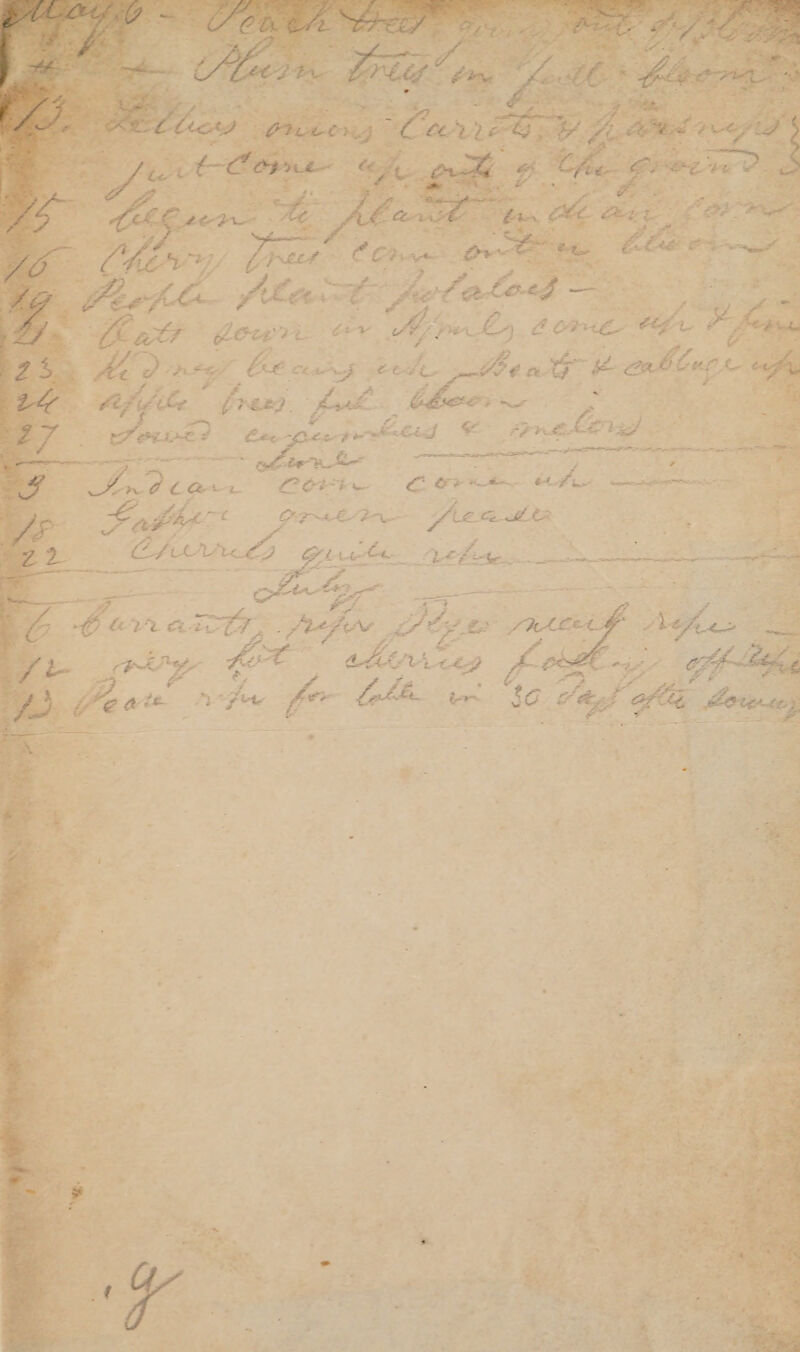 May 6 - Peach trees going out of Bloom
" - Plum trees in full bloom
13. Lettuce onions Carrots & parsneps
just Come up out of the ground
15 begun to plant indean corn
16 Chery trees come out in bloom
19 People plant potatoes -
21 Oats sown in Apriel, come up & fine
23 Kidney beans up Beats & cabbage up
24 apple trees full bloom
27 Sowed cucumbers & melons
June
9 Indian corn come up
18 Gather green pease
22 Cherries quite ripe
July
6 Currants ripe Rye nearly ripe
12 very hot cherries falling off Ripe
13 Pease ripe for table in 30 days after sowing
g